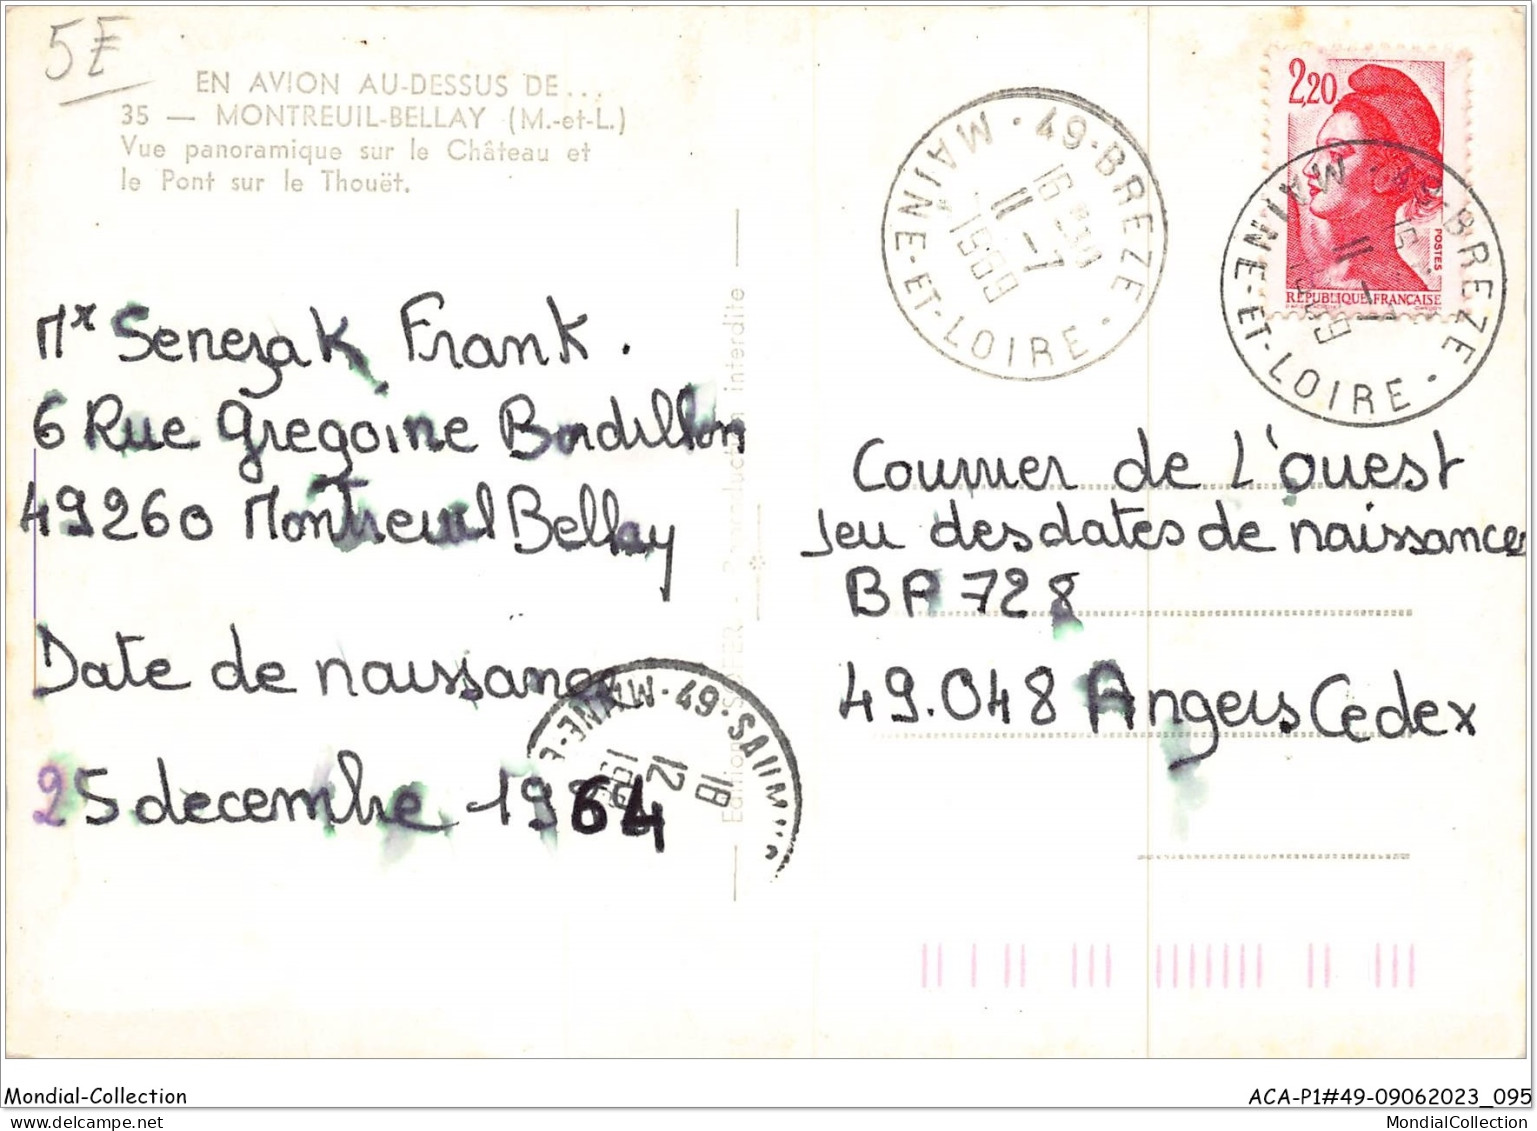 5E
EN AVION AU-DESSUS DE...
35 — MONTREUIL-BELLAY (M.-et-L.)
Vue panoramique sur le Château et
le Pont sur le Thouët.
Mr Senezak Frank.
6 Rue Gregoine Bordillon
49260 Montreuil Bellay
Date de naissance
25 decembre 1964
49-SAUMUR
MAINE-E
18
12
Edition SOFER - Reproduction interdite
49-BREZE
MAINE-ET-LOIRE
16 H30
11-7
1989
2,20
POSTES
REPUBLIQUE FRANCAISE
49-BREZE
MAINE-ET-LOIRE
11-7
Courrier de L'ouest
Jeu des dates de naissances
BP 728
49.048 Angers Cedex
Mondial-Collection
ACA-P1#49-09062023_095
MondialCollection